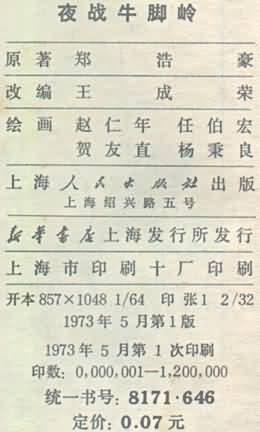 夜战牛脚岭
原著 郑浩豪
改编 王成荣
绘画 赵仁年 任伯宏
贺友直 杨秉良
上海人民出版社出版
上海绍兴路五号
新华书店上海发行所发行
上海市印刷十厂印刷
开本 857×1048 1/64 印张 1 2/32
1973年5月第1版
1973年5月第1次印刷
印数: 0,000,001—1,200,000
统一书号: 8171·646
定价: 0.07 元